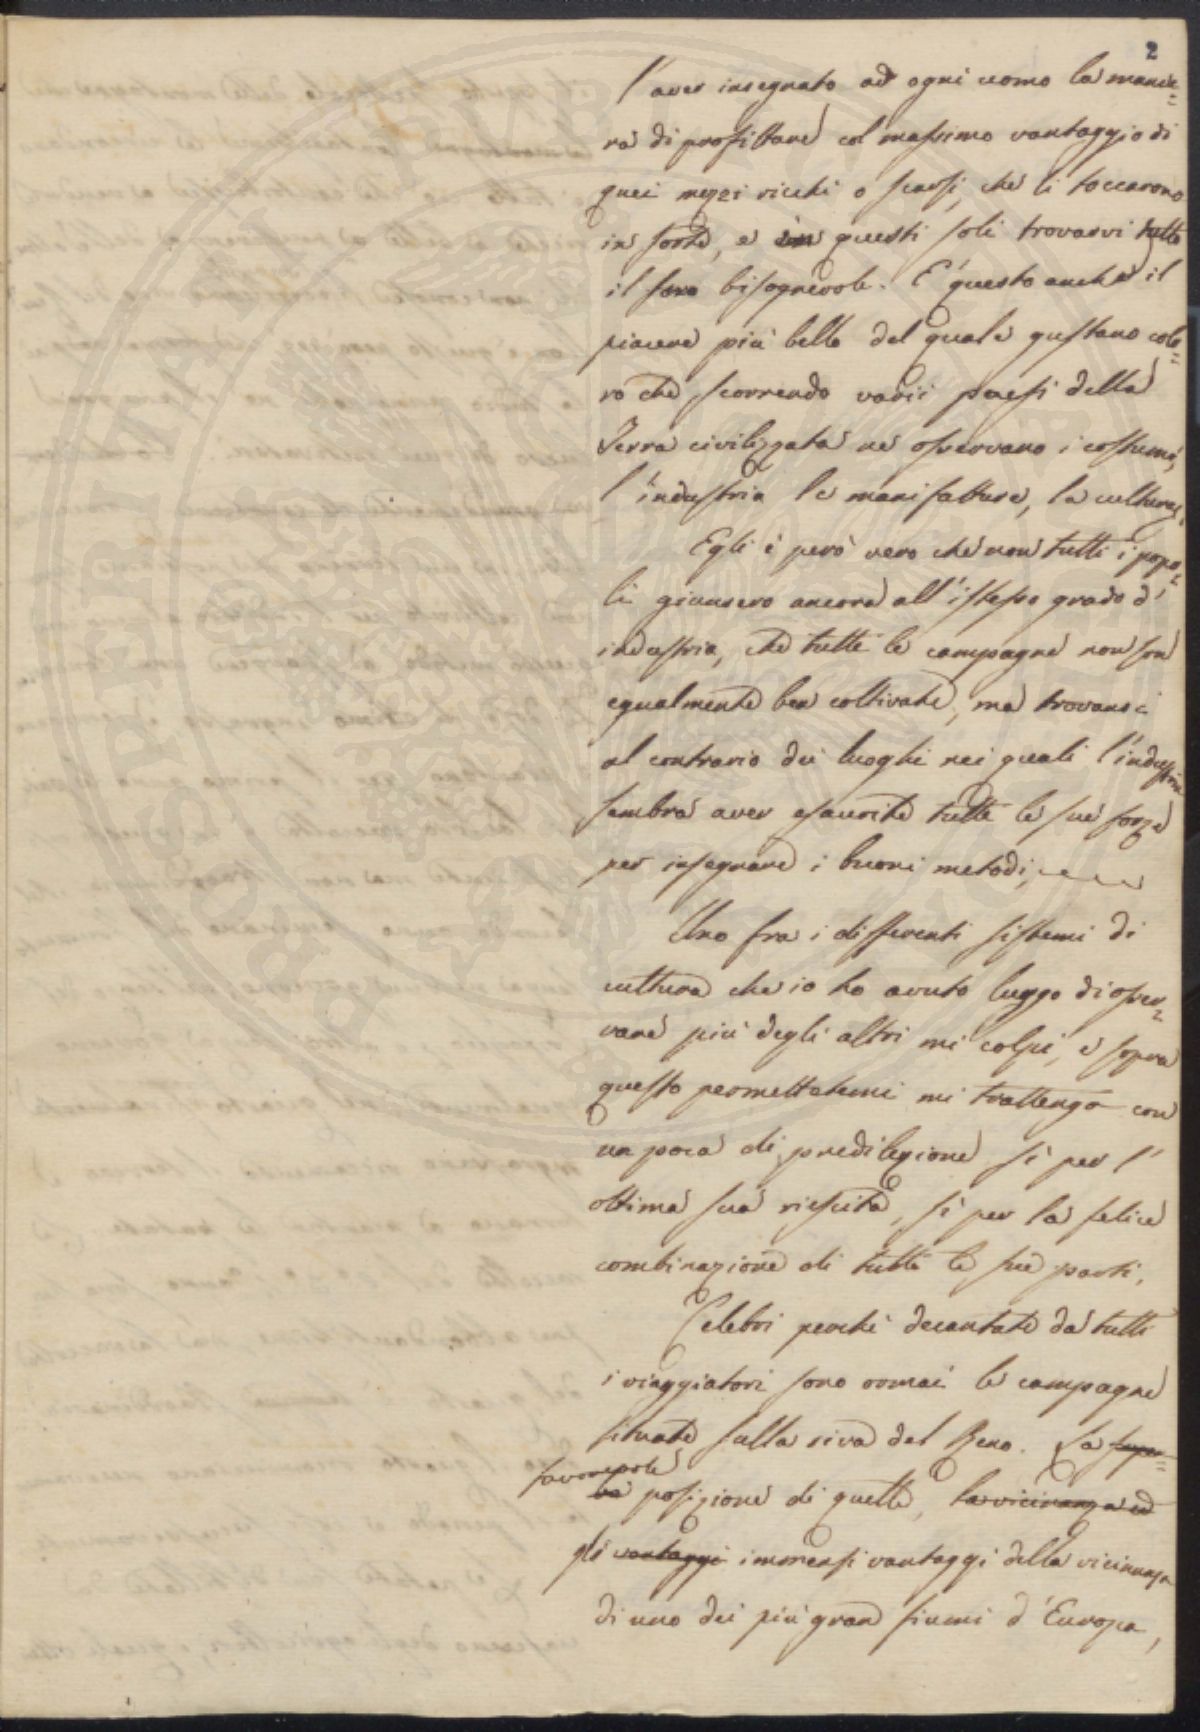 2
l'aver insegnato ad ogni uomo la manie=
ra di profittare col massimo vantaggio di
quei mezzi ricchi o scarsi, che li toccarono
in sorte, e in questi soli trovarvi tutto
il suo bisognevole. E' questo anche il
piacere più bello del quale gustano colo=
ro che scorrendo varii paesi della
Terra civilizzata ne osservano i costumi,
l'industria le manifatture, la cultura.
Egli è però vero che non tutti i popo=
li giunsero ancora all'istesso grado d'
industria, che tutte le campagne non son
egualmente ben coltivate, ma trovansi
al contrario dei luoghi nei quali l'industria
sembra aver esaurite tutte le sue forze
per insegnare i buoni metodi,
Uno fra i differenti sistemi di
cultura che io ho avuto luogo di osser=
vare più degli altri mi colpì, e sopra
questo permettetemi mi trattenga con
un poca di predilezione sì per l'
ottima sua riescita, sì per la felice
combinazione di tutte le sue parti.
Celebri perchè decantate da tutti
i viaggiatori sono oomai le campagne
situate sulla riva del Reno. La super=
favorevole
ba posizione di quelle, la vicinanza ed
gli vantaggi immensi vantaggi della vicinanza
di uno dei più gran fiumi d'Europa,
PROSPERITÀ PUB